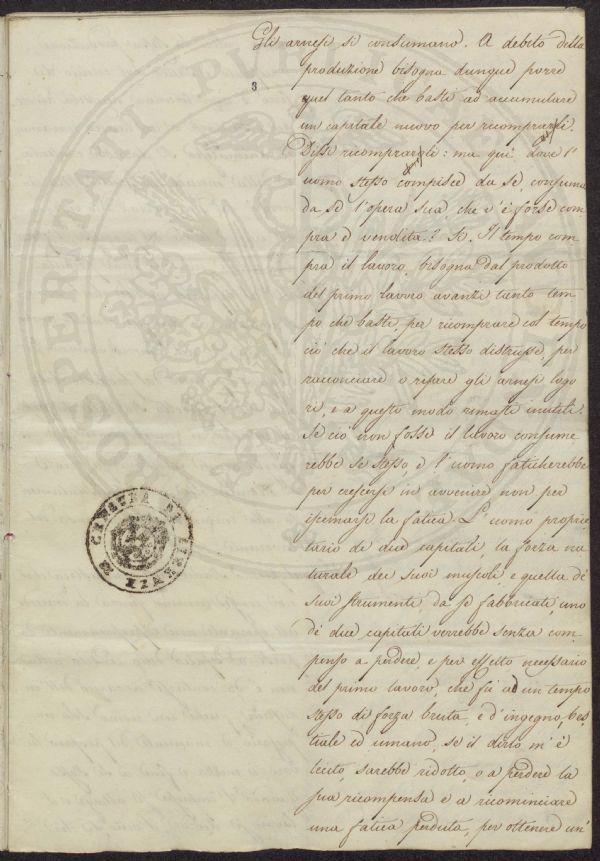 Gli arnesi si consumano. A debito della
produzione bisogna dunque porre
3
quel tanto che basti ad accumulare
un capitale nuovo per ricomprarli.
Dissi ricomprargli: ma qui dove l'
uomo stesso compisce da sè, consuma
da sè l'opera sua, che v'è forse com
pra e vendita? Sì. Il tempo com
pra il lavoro, bisogna dal prodotto
del primo lavoro avanzi tanto tem
po che basti per ricomprare col tempo
ciò che il lavoro stesso distrusse, per
racconciare o rifare gli arnesi logo
ri, e a questo modo rimasti inutili.
Se ciò non fosse il lavoro consume
rebbe se stesso e l'uomo faticherebbe
per crescersi in avvenire non per
iscemarsi la fatica. L'uomo proprie
tario di due capitali, la forza na
turale dei suoi muscoli e quella de'
suoi strumenti da se fabbricati, uno
de' due capitali verrebbe senza com
penso a perdere, e per effetto necessario
del primo lavoro, che fu ad un tempo
stesso di forza bruta, e d'ingegno, bes
tiale ed umano, se il dirlo m'è
lecito, sarebbe ridotto, o a perdere la
sua ricompensa e a ricominciare
una fatica perduta, per ottenere un'
CENSURA DI FIRENZE
PROSPERITATI PUB